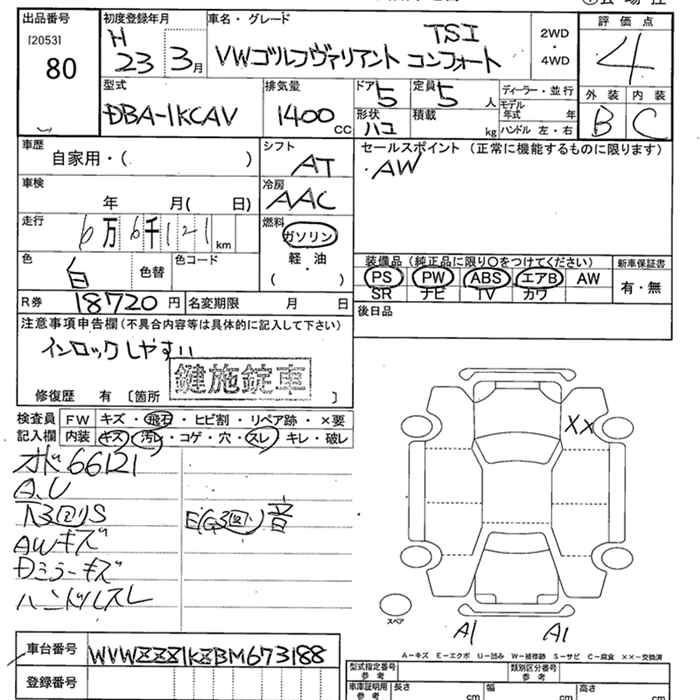 出品番号 初度登録年月 車名・グレード 評価点
[2053]
80
H
23 3月
TSI
VWゴルフヴァリアント コンフォート
2WD
・
4WD
4
型式 排気量 ドア 定員 ディーラー・並行 外装 内装
DBA-1KCAV 1400CC 5 5人
モデル年式 年
形状 積載 B C
ハコ kg ハンドル 左・右
車歴 シフト セールスポイント(正常に機能するものに限ります)
自家用・( ) AT ・AW
車検 冷房
年 月( 日) AAC
走行 燃料
6万6千121km ガソリン
色 色替 色コード 軽・油
白 ( )
装備品(純正品に限り○をつけてください) 新車保証書
PS PW ABS エアB AW 有・無
SR ナビ TV カワ
R券 18720円 名変期限 月 日
後日品
注意事項申告欄(不具合内容等は具体的に記入して下さい)
インロックしやすい
鍵施錠車
修復歴 有 〔箇所 〕
検査員 FW キズ・飛石・ヒビ割・リペア跡・×要
記入欄 内装 キズ・汚レ・コゲ・穴・スレ・キレ・破レ
オド66121
A.U
EG3回り音
AWキズ
Dミラーキズ
ハンドルスレ
XX
スペア
A1 A1
A-キズ E-エクボ U-凹み W-補修跡 S-サビ C-腐食 ××-交換済
車台番号 WVWZZZ1KZBM673188
登録番号
型式指定番号 参考 類別区分番号 参考
車庫証明用 参考 長さ cm 幅 cm 高さ cm